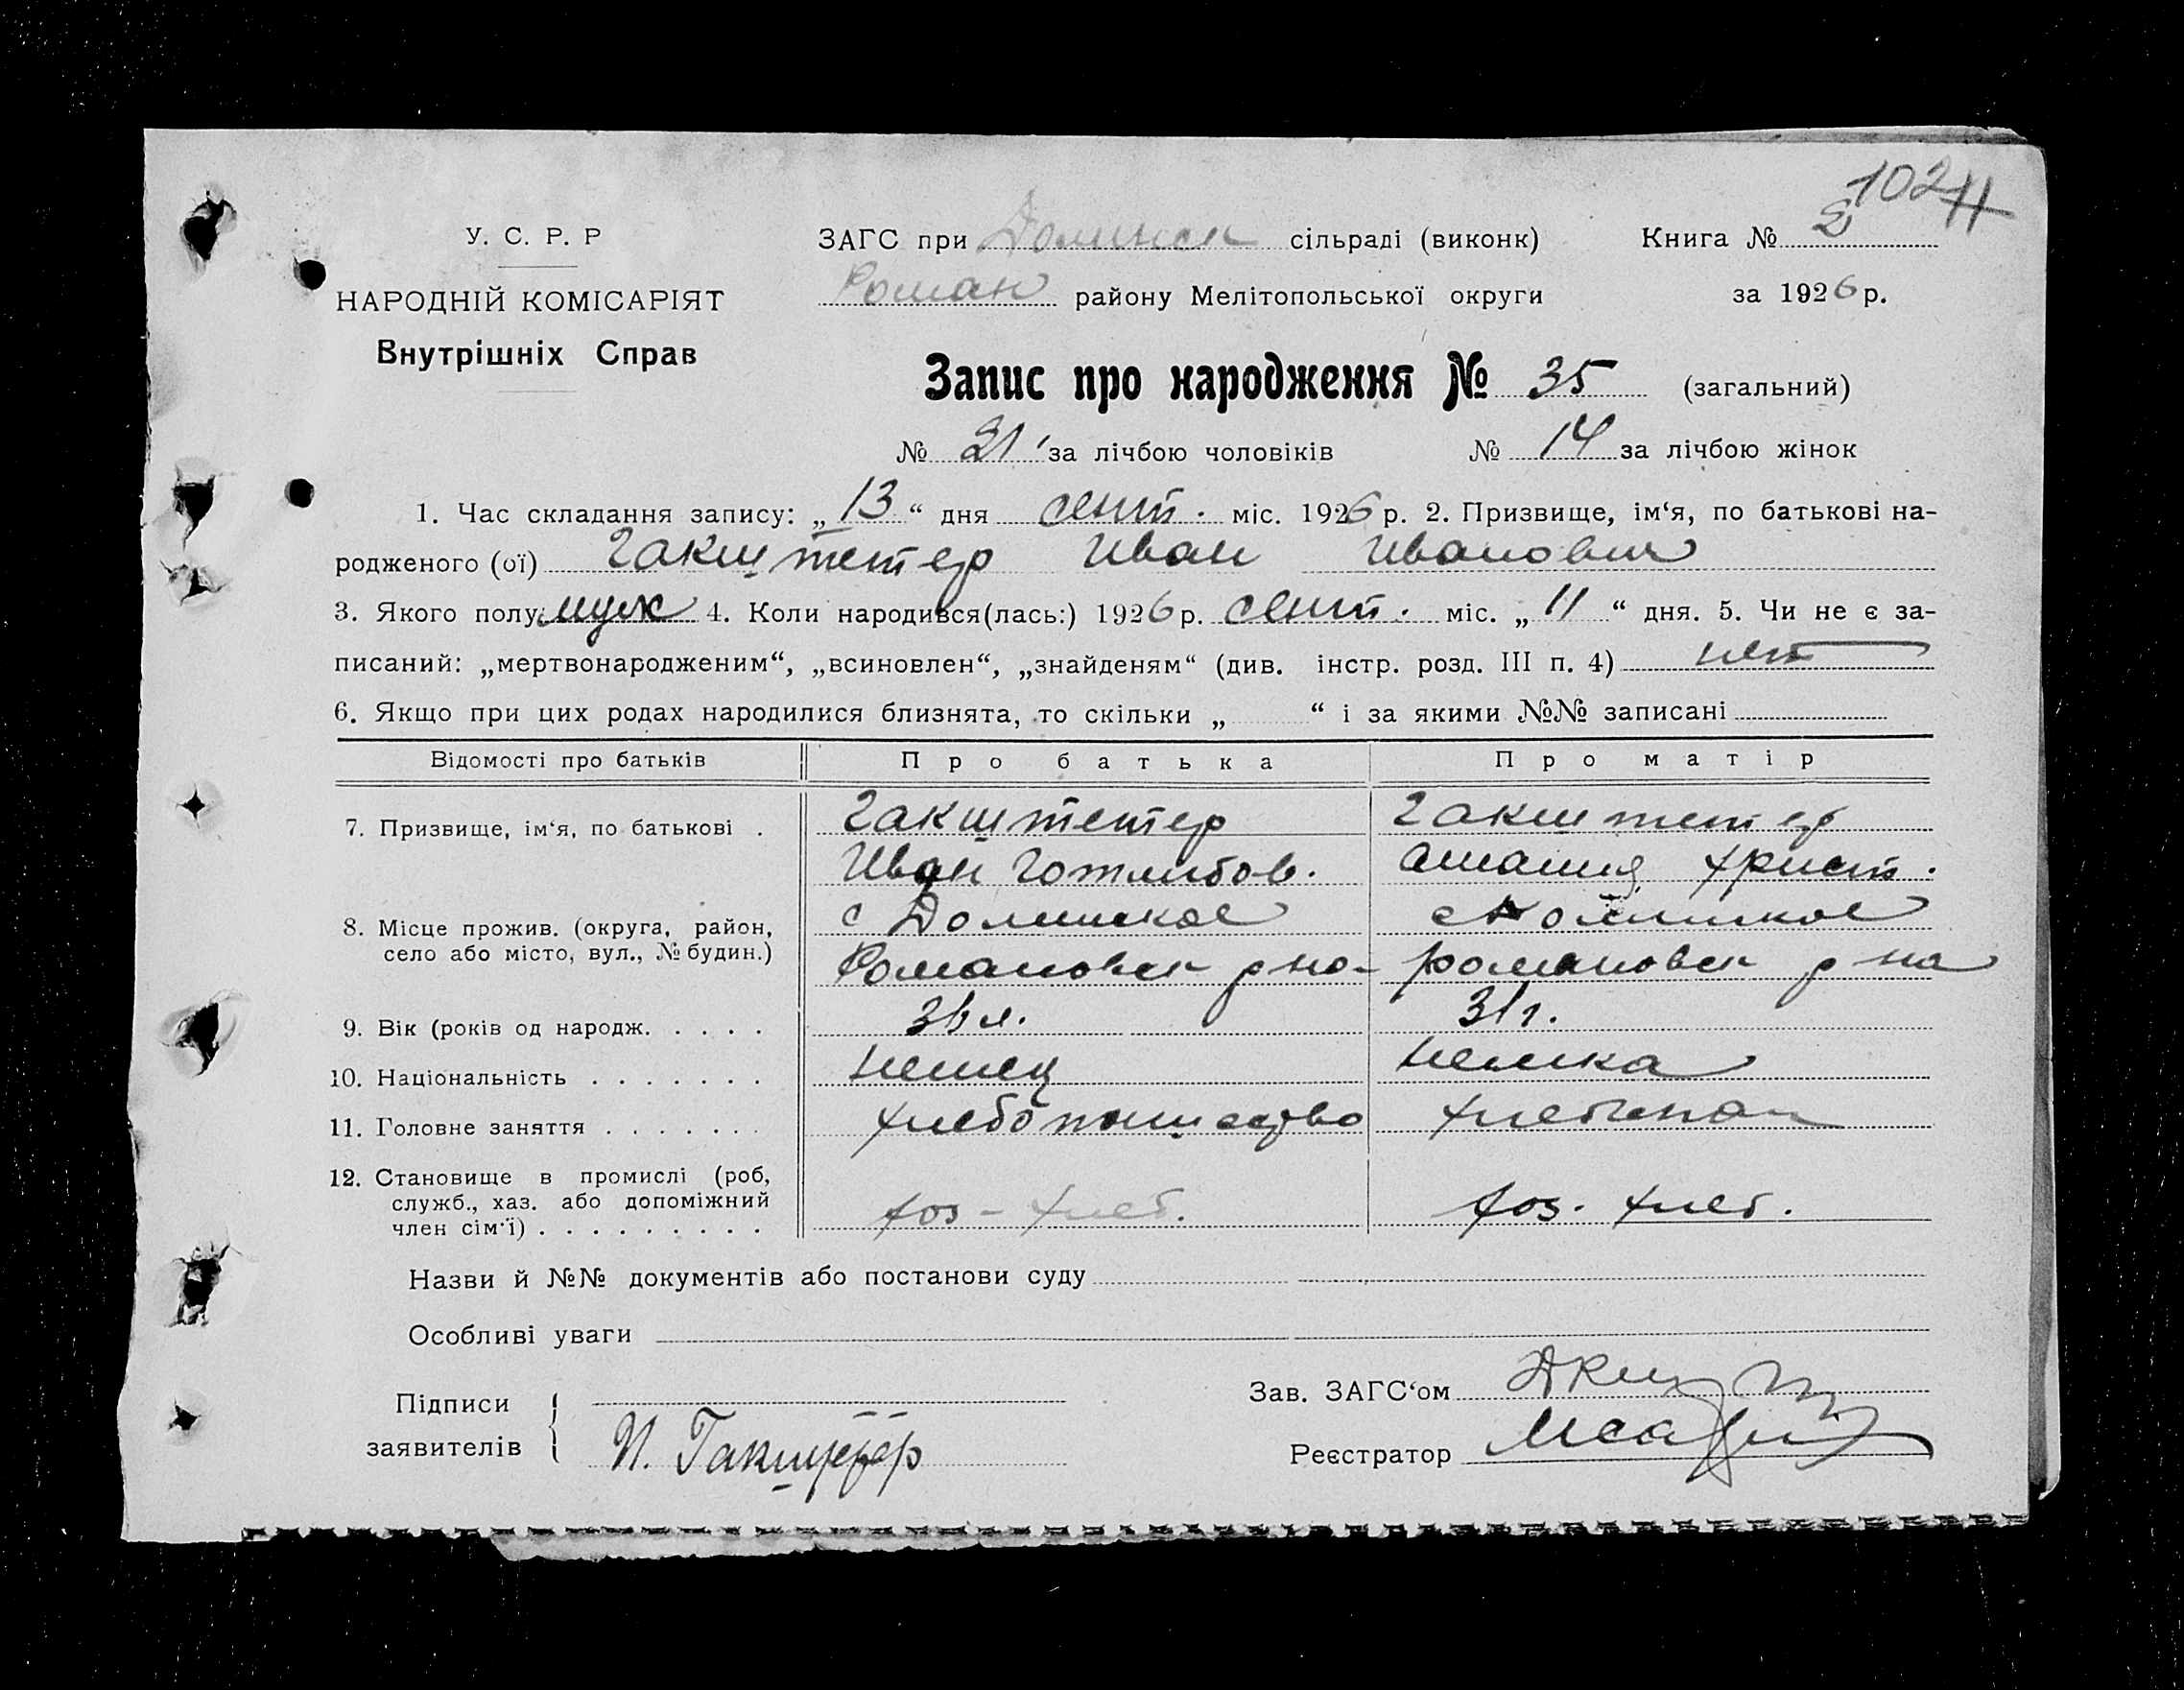 102
У. С. Р. Р
ЗАГС при Долинск сільраді (виконк) Книга № 2
НАРОДНІЙ КОМІСАРІЯТ
Роман району Мелітопольської округи за 1926 р.
Внутрішніх Справ
Запис про народження № 35 (загальний)
№ 21 за лічбою чоловіків № 14 за лічбою жінок
1. Час складання запису: „13“ дня сент. міс. 1926 р. 2. Призвище, ім‘я, по батькові на-
родженого (ої) Гакштетер Иван Иванович
3. Якого полу: муж 4. Коли народився(лась:) 1926 р. сент. міс. „11“ дня. 5. Чи не є за-
писаний: „мертвонародженим“, „всиновлен“, „знайденям“ (див. інстр. розд. III п. 4) нет
6. Якщо при цих родах народилися близнята, то скільки „ “ і за якими №№ записані
Відомості про батьків Про батька Про матір
7. Призвище, ім‘я, по батькові . Гакштетер Гакштетер
Иван Готлибов. Амалия Христ.
8. Місце прожив. (округа, район, с Долинское с Долинское
село або місто, вул., № будин.) Романовск р на- романовск р на
9. Вік (років од народж. . . . . 31 г.
10. Національність . . . . . . . немец немка
11. Головне заняття . . . . . . . хлебопашество
12. Становище в промислі (роб,
служб., хаз. або допоміжний хоз - хлеб. хоз. хлеб.
член сім‘ї) . . . . . . . . .
Назви й №№ документів або постанови суду
Особливі уваги
Підписи
заявителів И. Гакштетер
Зав. ЗАГС‘ом
Реєстратор